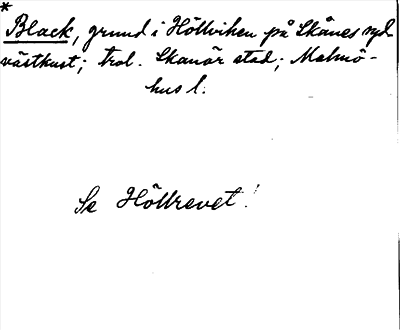 *
Black, grund i Höllviken på Skånes syd-
västkust; trol. Skanör stad; Malmö-
hus l.
Se Höllrevet!